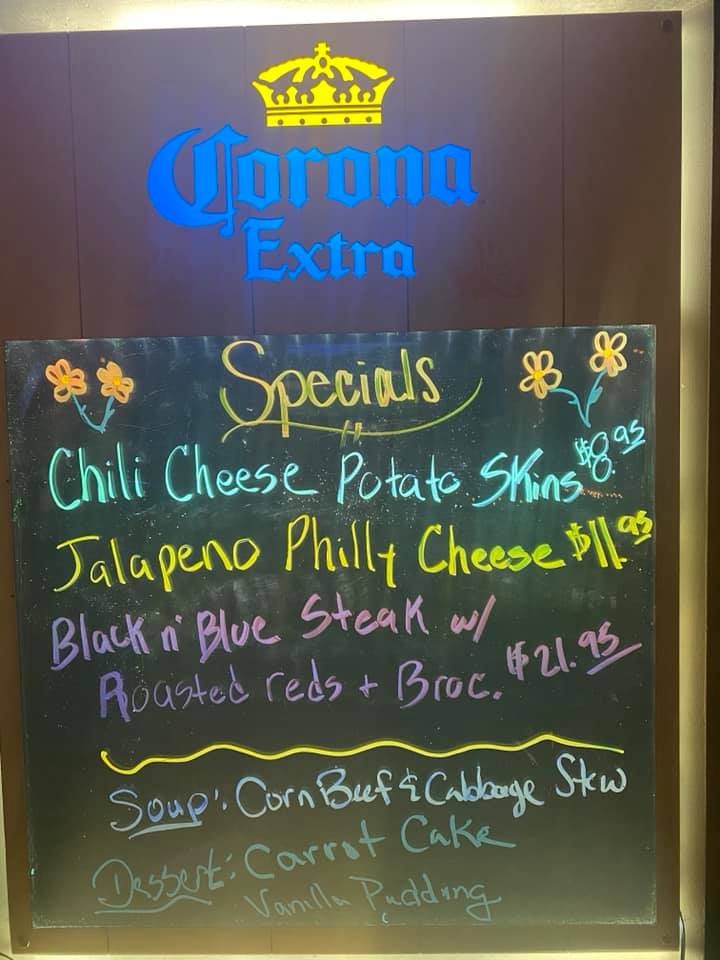 Corona
Extra
Specials
Chili Cheese Potato Skins $8.95
Jalapeno Philly Cheese $11.95
Black n' Blue Steak w/
Roasted reds + Broc. $21.95
Soup: Corn Beef & Cabbage Stew
Dessert: Carrot Cake
Vanilla Pudding